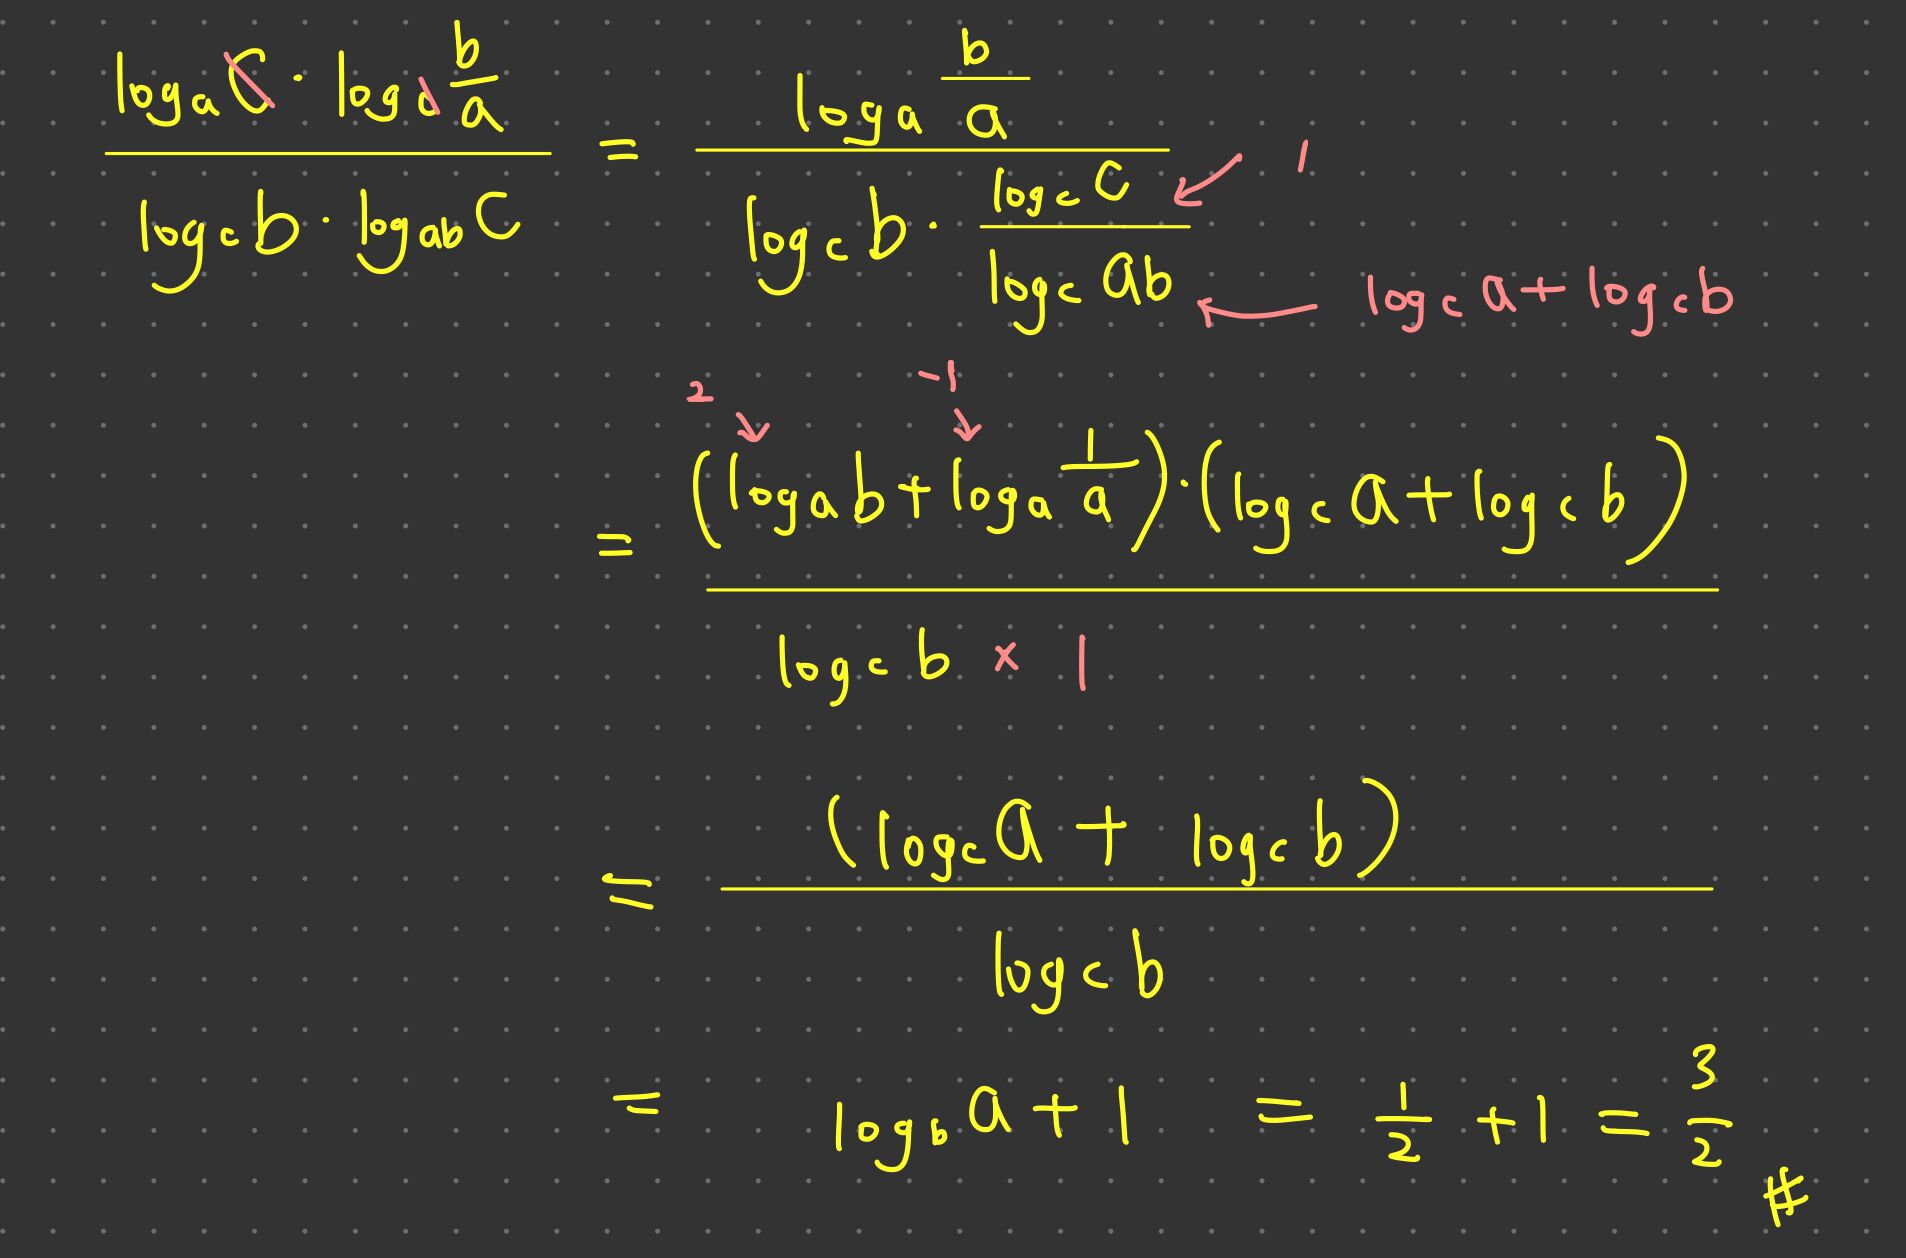 log_a C · log_c b/a / log_c b · log_ab C = log_a b/a / log_c b · log_c C / log_c ab ← 1
← log_c a + log_c b
2 -1
= (log_a b + log_a 1/a) · (log_c a + log_c b) / log_c b × 1
= (log_c a + log_c b) / log_c b
= log_b a + 1 = 1/2 + 1 = 3/2 #